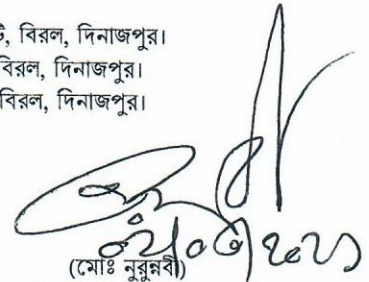 , বিরল, দিনাজপুর।
বিরল, দিনাজপুর।
বিরল, দিনাজপুর।
(মোঃ নুরুন্নবী)